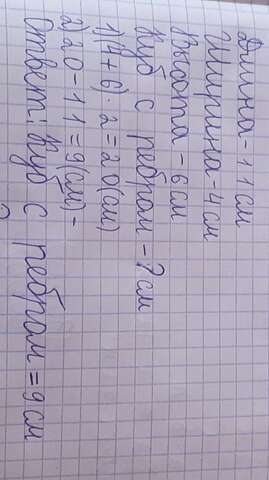 Длина - 11 см
Ширина - 4 см
Высота - 6 см
Куб с ребрам - ? см
1) (4+6) · 2 = 20 (см)
2) 20 - 11 = 9 (см) -
Ответ: Куб с ребрам = 9 см